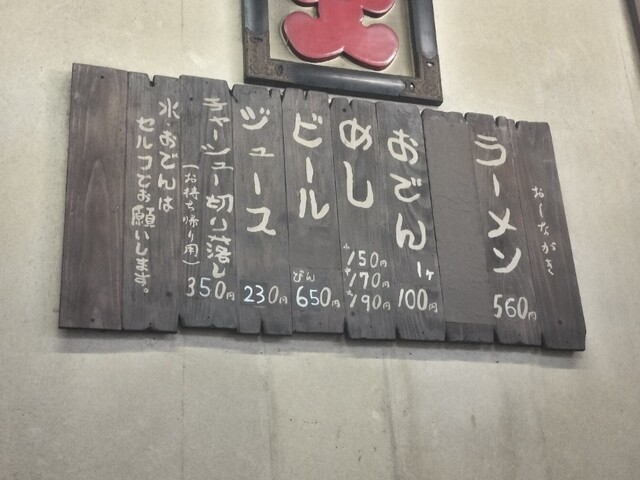 おしながき
ラーメン 560円
おでん 1ケ 100円
めし 小150円 中170円 大190円
ビール びん 650円
ジュース 230円
チャーシュー切り落し (お持ち帰り用) 350円
水おでんは
セルフでお願いします。